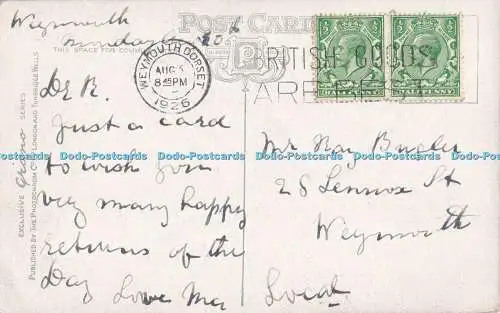 Weymouth
Monday
POST CARD
THIS SPACE FOR COMM
WEYMOUTH DORSET
AUG
8 45 PM
1926
BRITISH GOODS
ARE BEST
HALFPENNY
HALFPENNY
EXCLUSIVE Grano SERIES
PUBLISHED BY THE PHOTOCHROM CO. LTD LONDON AND TUNBRIDGE WELLS
Dr R.
Just a card
to wish you
very many happy
returns of the
Day Love Ma
Mr Ray Bugler
28 Lennox St
Weymouth
Local
Dodo-Postcards Dodo-Postcards Dodo-Postcards Dodo-Postcards
Dodo-Postcards Dodo-Postcards Dodo-Postcards Dodo-Postcards